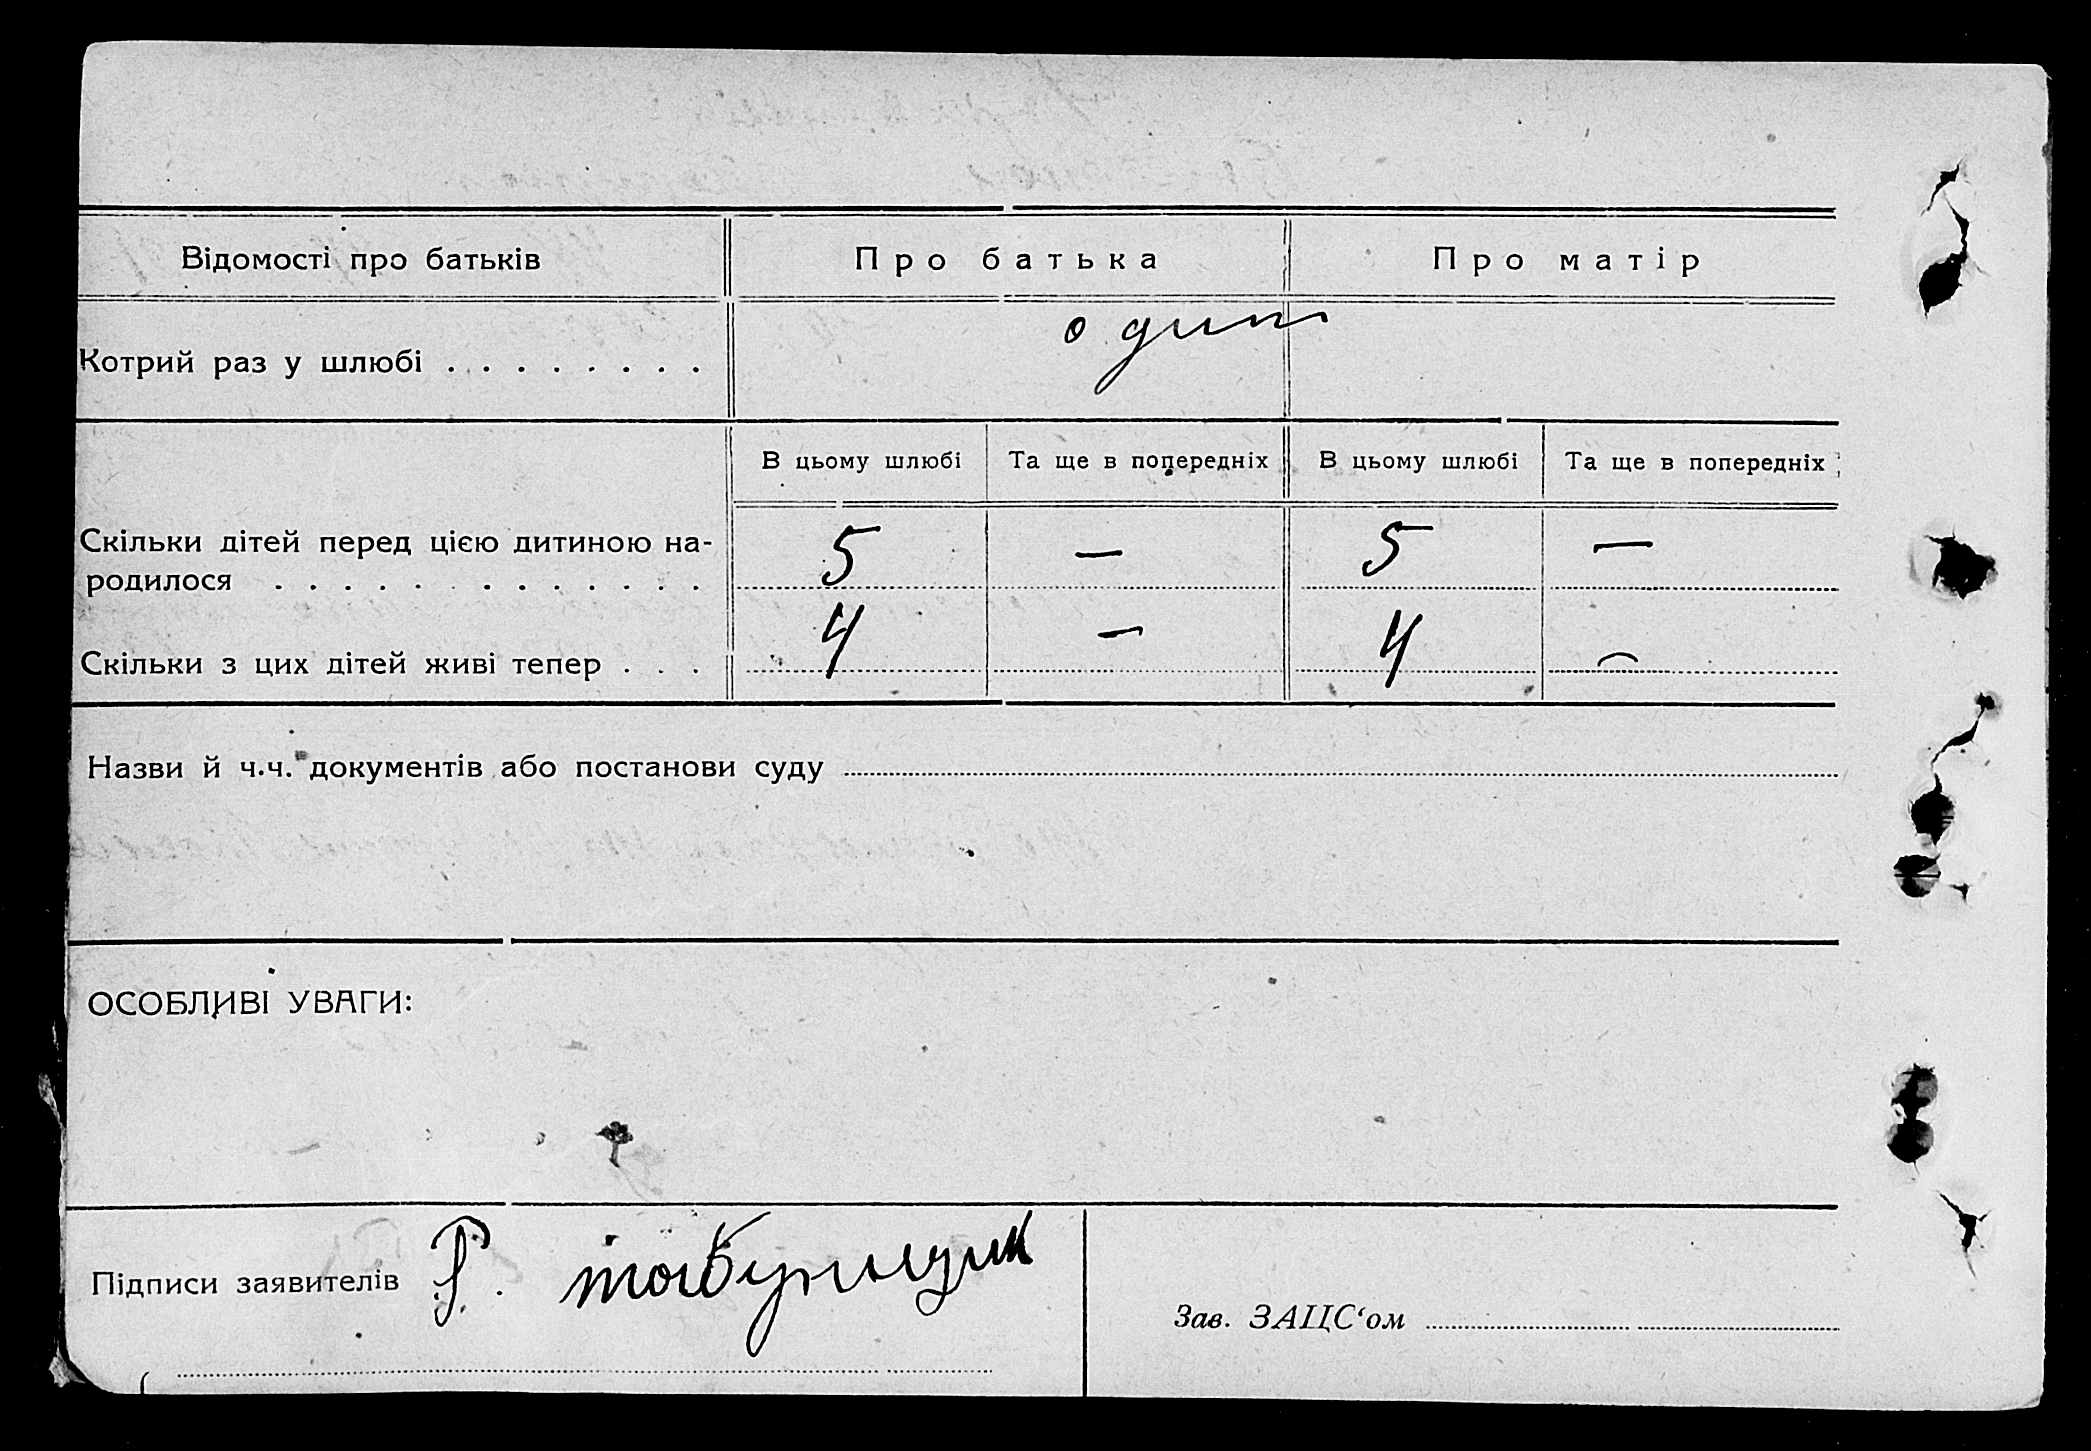 Відомості про батьків Про батька Про матір
Котрий раз у шлюбі . . . . . . . . один
В цьому шлюбі Та ще в попередніх В цьому шлюбі Та ще в попередніх
Скільки дітей перед цією дитиною на-
родилося . . . . . . . . . . . . . 5 — 5 —
Скільки з цих дітей живі тепер . . . 4 — 4 —
Назви й ч.ч. документів або постанови суду
ОСОБЛИВІ УВАГИ:
Підписи заявителів Р.
Зав. ЗАЦС‘ом